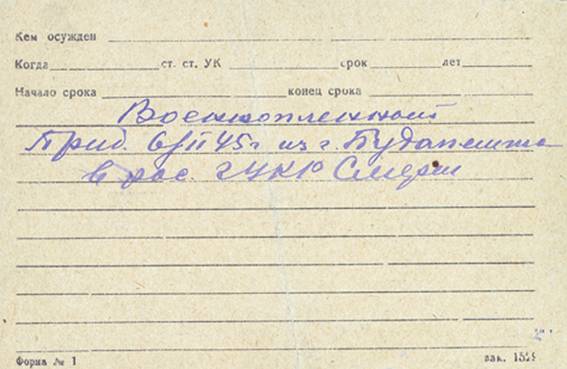 Кем осужден
Когда ст. ст. УК срок лет
Начало срока конец срока
Военнопленный
Приб. 6/II 45 г из г. Будапешта
в рас. ГУКР Смерш
Форма № 1 зак. 1529